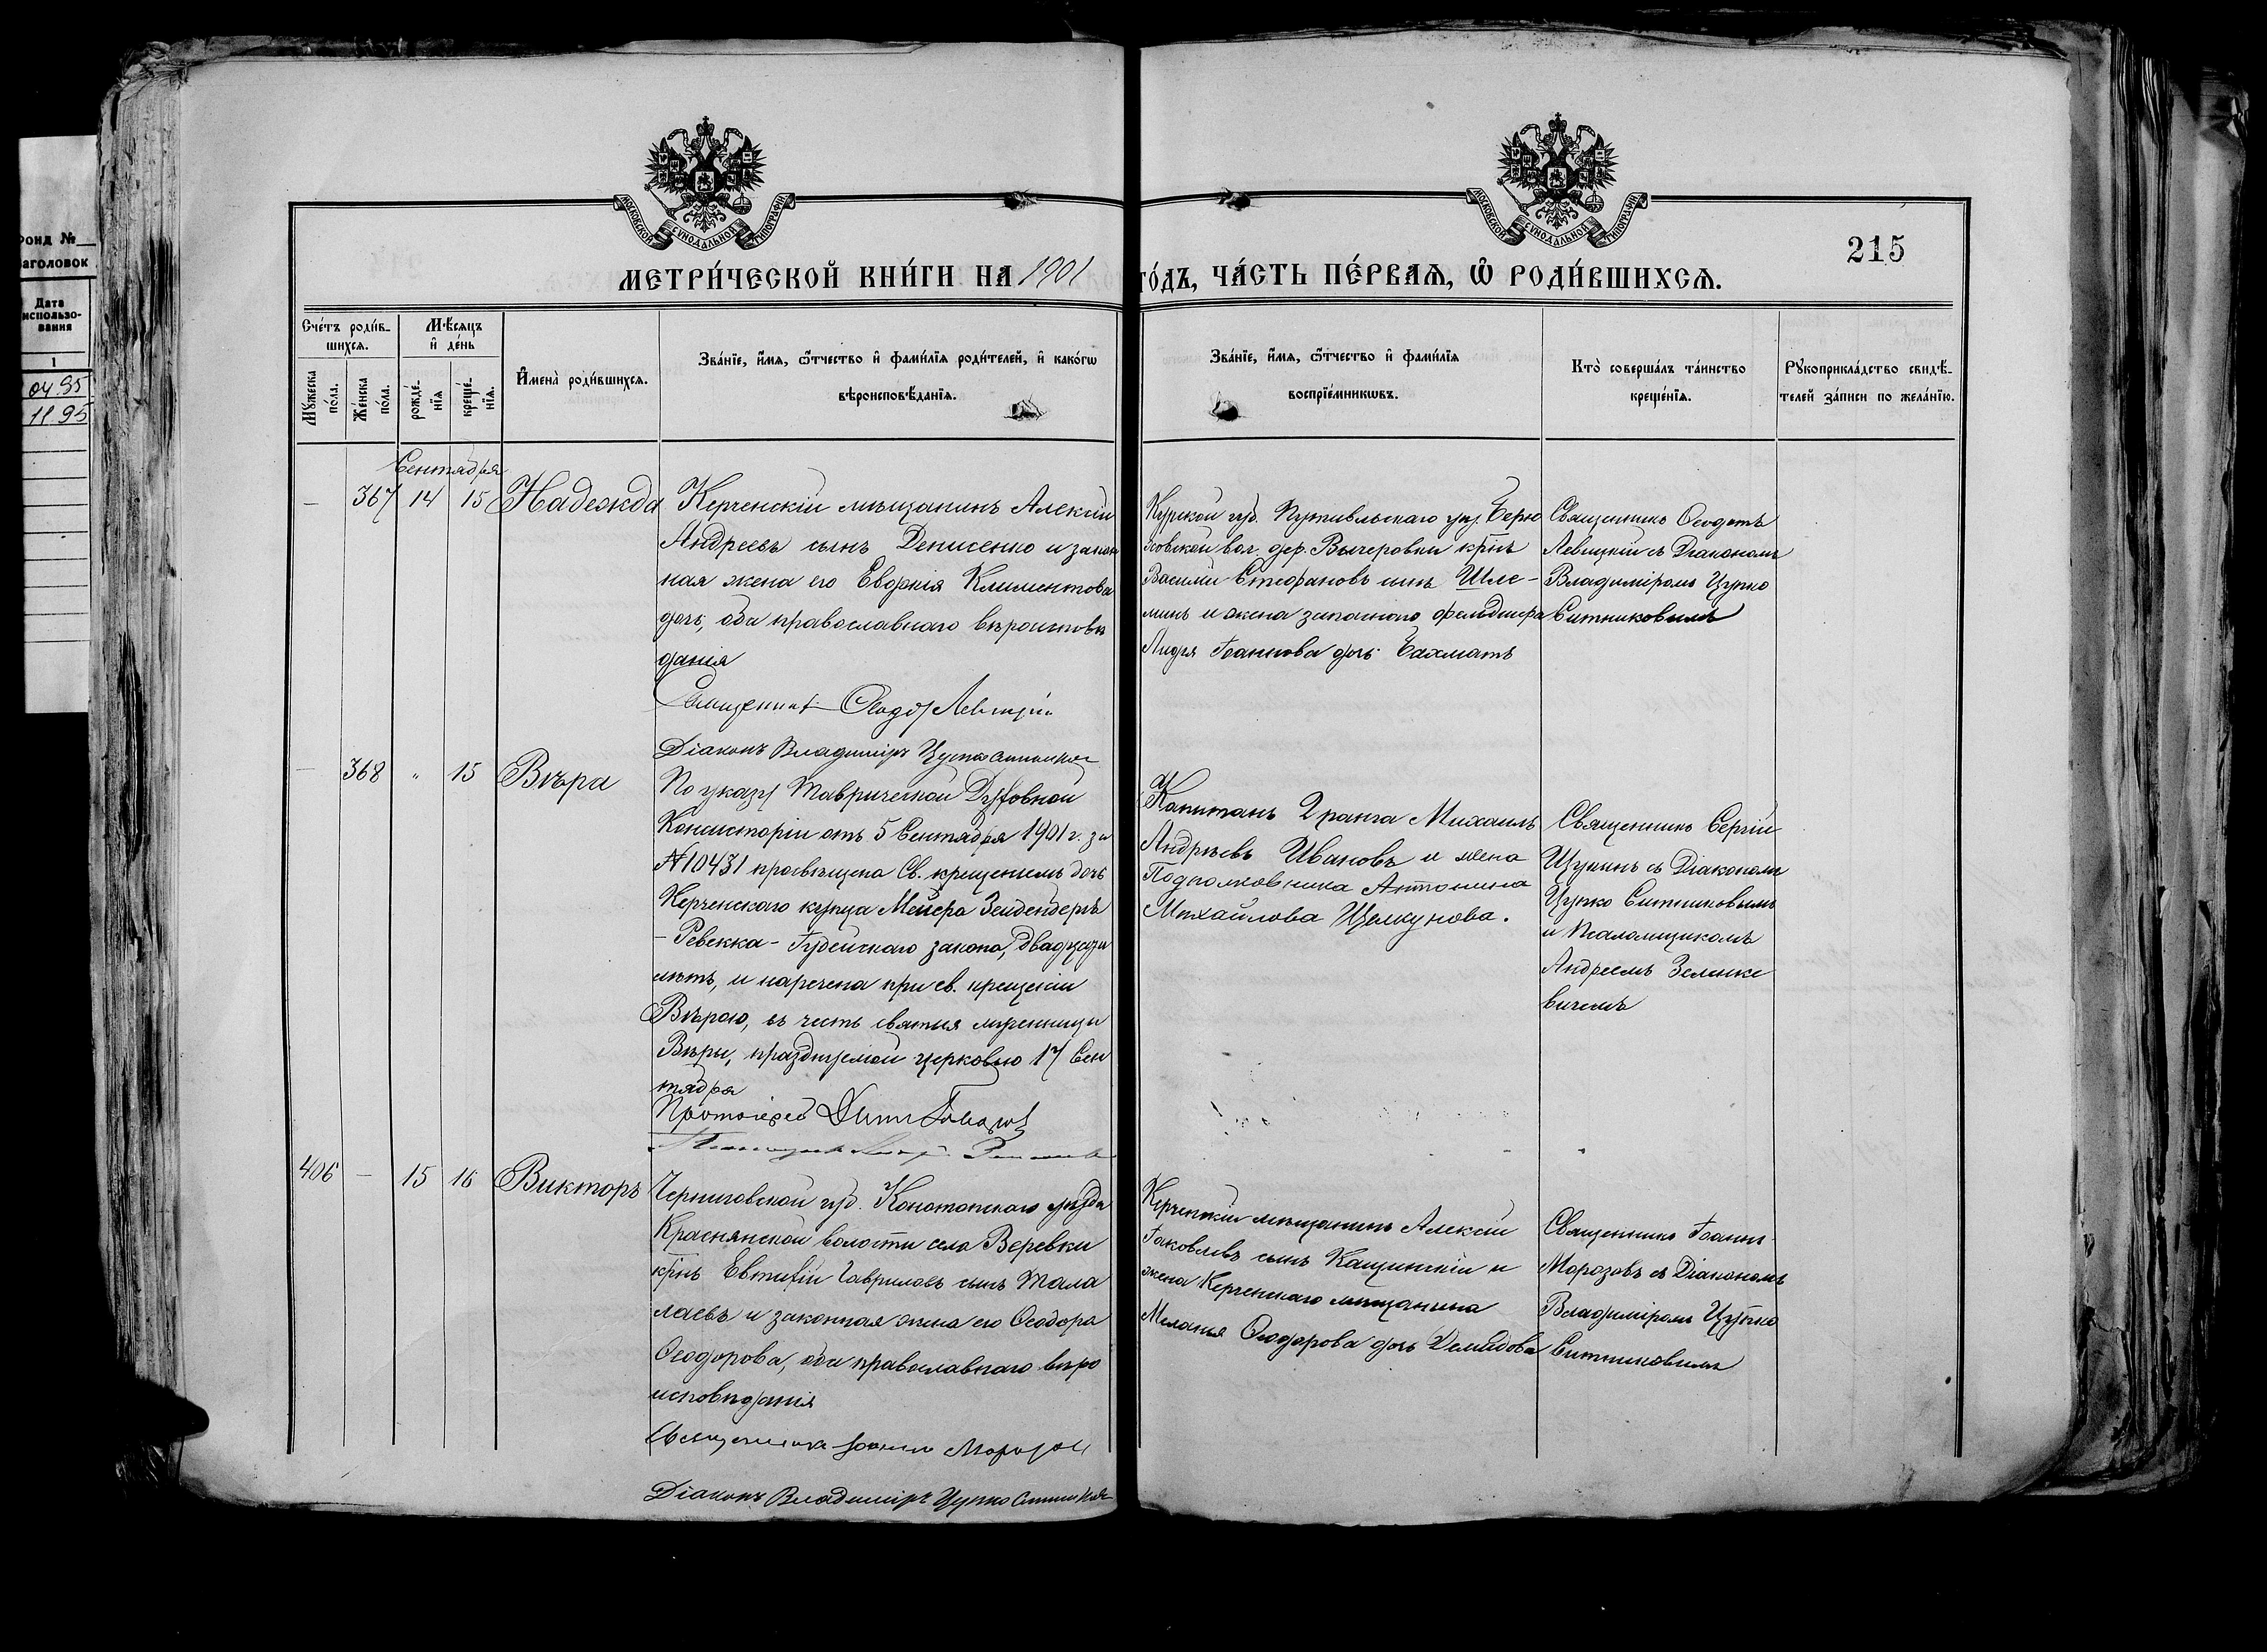 Фонд №
Заголовок
Дата
использо-
вания
1
04.95
11 95
МОСКОВСКОЙ СѴНОДАЛЬНОЙ ТИПОГРАФІИ
МОСКОВСКОЙ СѴНОДАЛЬНОЙ ТИПОГРАФІИ
215
МЕТРИ́ЧЕСКОЙ КНИ́ГИ НА 1901 ГО́ДЪ, ЧА́СТЬ ПЕ́РВАѦ, Ѡ РОДИ́ВШИХСѦ.
Сче́тъ роди́в-
шихсѧ.
Мꙋ́жеска
по́ла.
Же́нска
по́ла.
Мѣ́сяцъ
и де́нь
рожде́-
нїѧ
креще́-
нїѧ.
Имена̀ роди́вшихсѧ.
Зва́нїе, и́мѧ, ѻ́тчество и фами́лїѧ роди́телей, и како́гѡ
вѣроисповѣ́данїѧ.
Зва́нїе, и́мѧ, ѻ́тчество и фами́лїѧ
воспрїе́мникѡвъ.
Кто̀ соверша́лъ та́инство
креще́нїѧ.
Рꙋкоприкла́дство свидѣ́-
телей за́писи по жела́нїю.
Сентября
— 367 14 15 Надежда
Керченскій мѣщанинъ Алексій
Андреевъ сынъ Денисенко и закон
ная жена его Евдокія Климентова
дочь, оба православнаго вѣроисповѣ
данія
Священникъ Ѳеодотъ Левицкій
Діаконъ Владиміръ Цупко Ситников
Курской губ. Путивльскаго уѣз.
вол. дер. Вычеровки кр̃нъ
Василій Стефановъ сынъ Шле-
минъ и жена запаснаго фельдшера
Лидія Іоаннова дочь Бахматъ
Священникъ Ѳеодотъ
Левицкій съ Діакономъ
Владиміромъ Цупко
Ситниковымъ
— 368 „ 15 Вѣра
По указу Таврической Духовной
Консисторіи отъ 5 Сентября 1901 г. за
№ 10431 просвѣщена Св. крещеніемъ дочь
Керченскаго купца Мейера Зейденберга
– Ревекка – Іудейскаго закона, двадцати
лѣтъ, и наречена при св. крещеніи
Вѣрою, въ честь святыя мученицы
Вѣры, празднуемой церковью 17 Сен
тября
Протоіерей
Капитанъ 2 ранга Михаилъ
Андреевъ Ивановъ и жена
Подполковника Антонина
Михайлова Щелкунова.
Священникъ Сергій
Щукинъ съ Діакономъ
Цупко Ситниковымъ
и Псаломщикомъ
Андреемъ Зелинке
вичемъ
406 — 15 16 Викторъ
Черниговской губ. Конотопскаго уѣзда
Краснянской волости села Веревки
кр̃нъ Евтихій Гавриловъ сынъ Тала
лаевъ и законная жена его Ѳеодора
Ѳеодорова, оба православнаго вѣро
исповѣданія
Священникъ Іоаннъ Морозов
Діаконъ Владиміръ Цупко Ситников
Керченскій мѣщанинъ Алексій
Іаковлевъ сынъ Кащинскій и
жена Керченскаго мѣщанина
Меланья Ѳеодорова дочь Демидова
Священникъ Іоаннъ
Морозовъ съ Діакономъ
Владиміромъ Цупко
Ситниковымъ